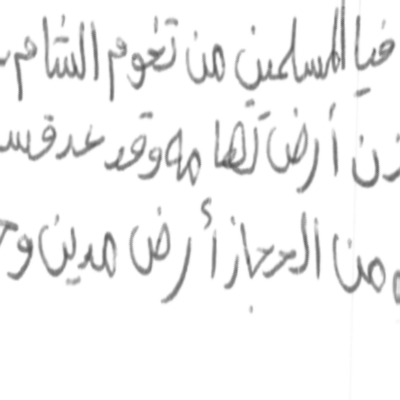 فيا المسلمين من تخوم الشام
أرض تهامه وقد عد قس
من الحجاز أرض مدين و